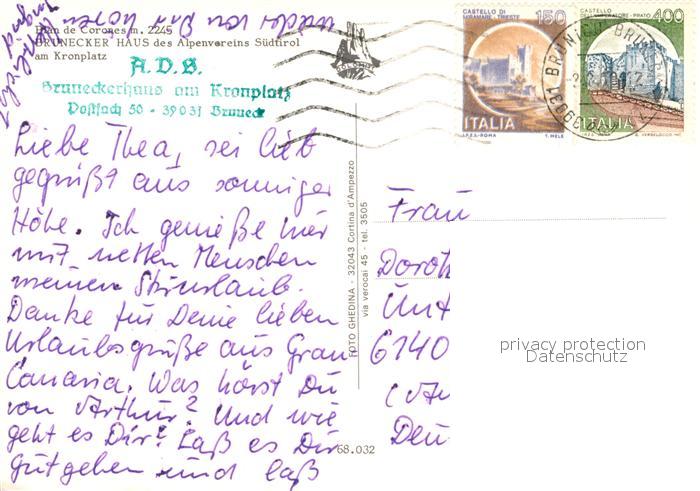 Plan de Corones m. 2245
BRUNECKER HAUS des Alpenvereins Südtirol
am Kronplatz
A.D.S.
Bruneckerhaus am Kronplatz
Postfach 50 - 39031 Bruneck
Liebe Thea, sei lieb
gegrüßt aus sonniger
Höhe. Ich genieße hier
mit netten Menschen
meinen Skiurlaub.
Danke für Deine lieben
Urlaubsgrüße aus Gran
Canaria. Was hörst Du
von Arthur? Und wie
geht es Dir? Laß es Dir
gut gehen und laß
wieder von Dir hören
FOTO GHEDINA - 32043 Cortina d'Ampezzo
via verocai 45 - tel. 3505
68.032
CASTELLO DI
MIRAMARE - TRIESTE
150
ITALIA
I.P.S.-ROMA
T. MELE
CASTELLO
DELL'IMPERATORE - PRATO
400
ITALIA
E. VERDELOCCO
BRUNICO
39031
Frau
Doroth
Unt
6140
Deu
privacy protection
Datenschutz